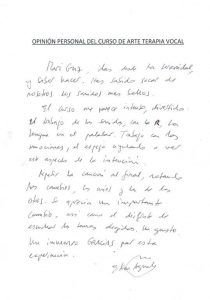 OPINIÓN PERSONAL DEL CURSO DE ARTE TERAPIA VOCAL
Mari Cruz, das toda tu
y saber hacer. Has sabido sacar de
nosotros los sonidos más bellos.
El curso me parece intenso, divertido.
El trabajo de los sonidos, con la R, la
lengua en el paladar. Trabajo con las
emociones, el espejo ayudando a ver
ese aspecto de la intención.
Repetir la canción al final, notando
los cambios, los míos y los de los
otros. Se aprecia un importante
cambio, así como el disfrute de
escuchar los temas elegidos. Un gusto.
Un inmenso Gracias por esta
experiencia.